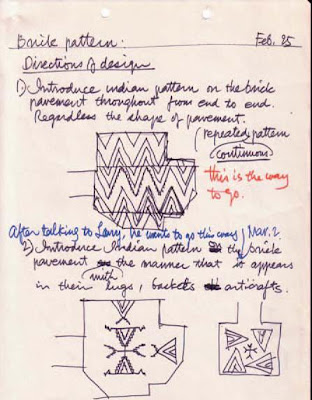 Brick pattern: Feb. 25
Directions of design
1) Introduce indian pattern on the brick
pavement throughout from end to end.
Regardless the shape of pavement.
(repeated pattern
continuous
this is the way
to go.
After talking to Larry, he wants to go this way, Mar. 2
2) Introduce Indian pattern the brick
pavement the manner that it appears
(with)
in their rugs, baskets articrafts.